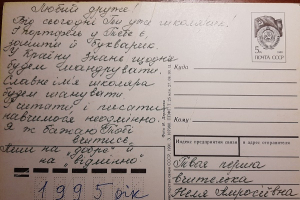 Любий друже!
Від сьогодні Ти уже школярик!
І портфель у Тебе є,
зошити й Букварик.
У Країну Знань щодня
будем мандрувати.
Славне ім'я школяра
будем шанувати!
Читати і писати
навчимося неодмінно.
Я ж бажаю Тобі
вчитись
лиш на "добре" й
на "відмінно"
1995 рік
5к
ПОЧТА СССР
Куда
Кому
Индекс предприятия связи и адрес отправителя
Твоя перша
вчителька
Неля Амросіївна